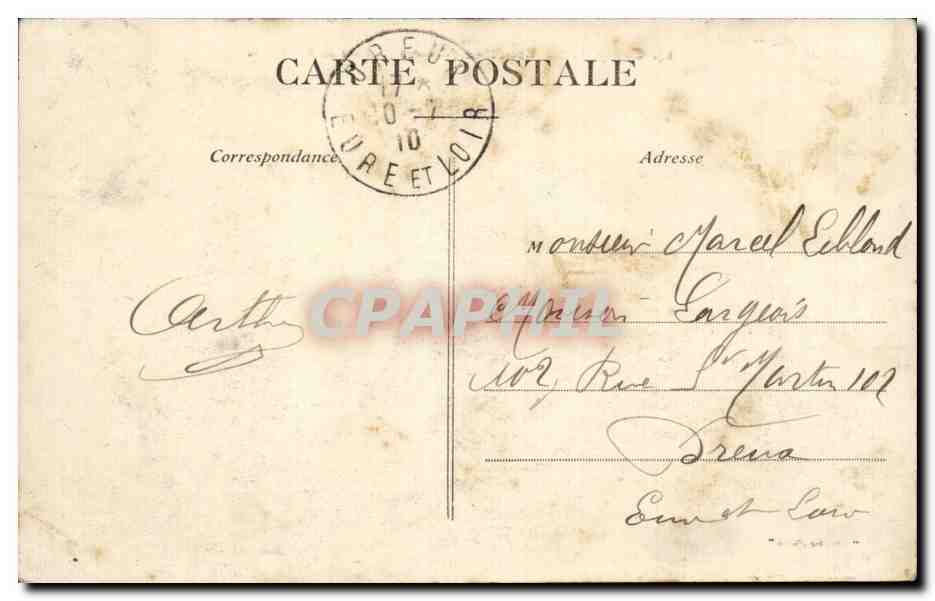 CARTE POSTALE
DREUX
17 *
20 - 7
10
EURE ET LOIR
Correspondance
Adresse
Monsieur Marcel Leblond
Maison Largeois
102, Rue St Martin 102
Dreux
Eure et Loir
Arthur
CPAPHIL